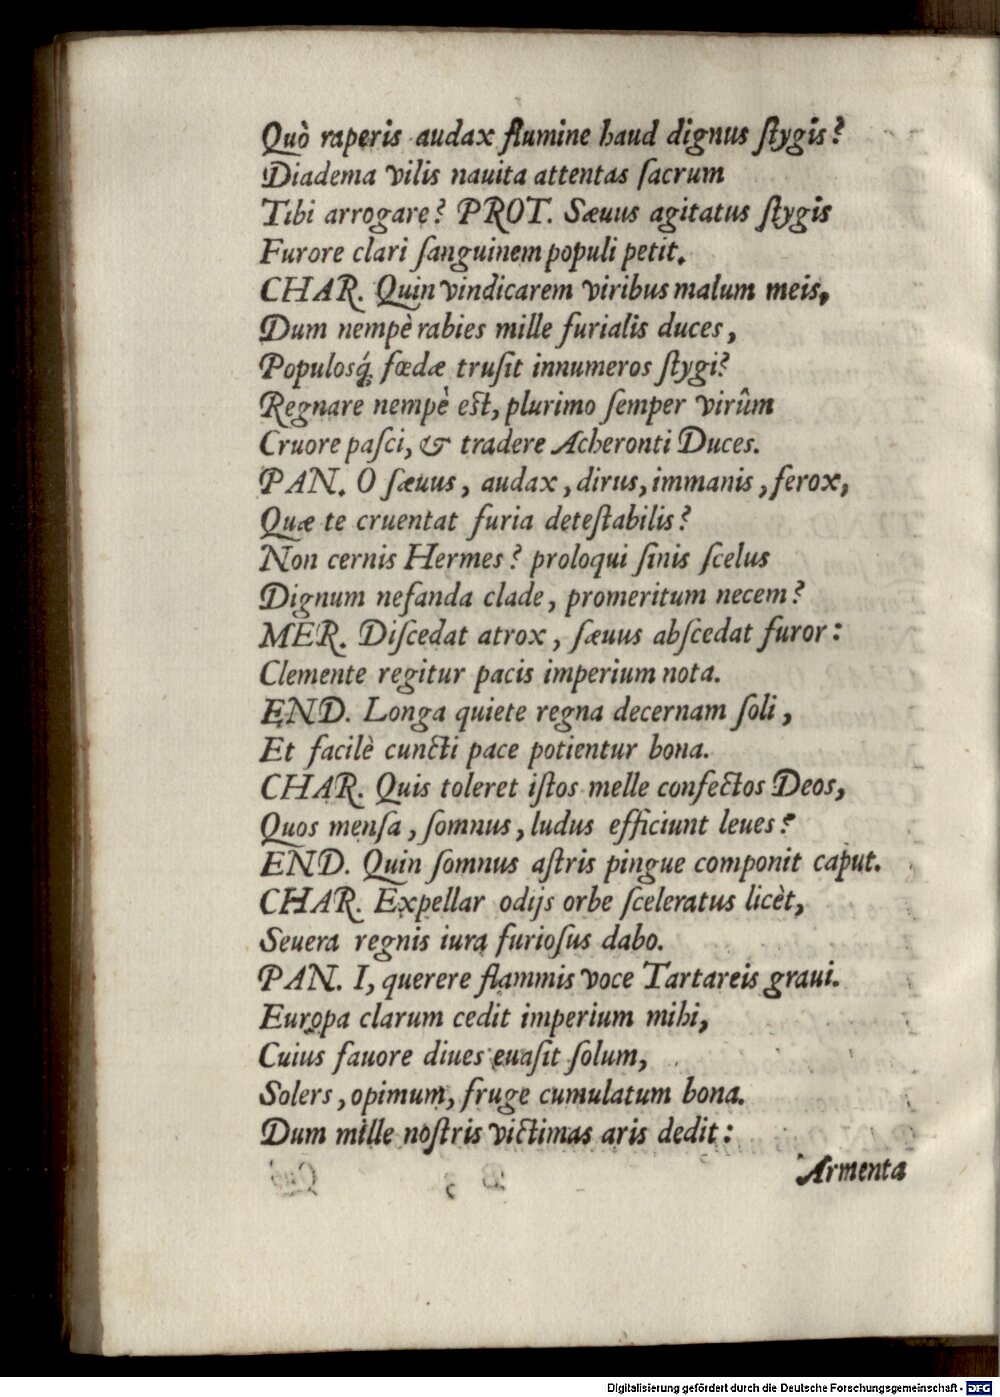 Quò raperis audax flumine haud dignus ſtygis?
Diadema vilis nauita attentas ſacrum
Tibi arrogare? PROT. Sæuus agitatus ſtygis
Furore clari ſanguinem populi petit.
CHAR. Quin vindicarem viribus malum meis,
Dum nempè rabies mille furialis duces,
Populosq́; fœdæ truſit innumeros ſtygi?
Regnare nempè est, plurimo ſemper virûm
Cruore paſci, & tradere Acheronti Duces.
PAN. O ſæuus, audax, dirus, immanis, ferox,
Quæ te cruentat furia deteſtabilis?
Non cernis Hermes? proloqui ſinis ſcelus
Dignum nefanda clade, promeritum necem?
MER. Diſcedat atrox, ſæuus abſcedat furor:
Clemente regitur pacis imperium nota.
END. Longa quiete regna decernam ſoli,
Et facilè cuncti pace potientur bona.
CHAR. Quis toleret iſtos melle confectos Deos,
Quos menſa, ſomnus, ludus efficiunt leues?
END. Quin ſomnus aſtris pingue componit caput.
CHAR. Expellar odijs orbe ſceleratus licèt,
Seuera regnis iura furioſus dabo.
PAN. I, querere flammis voce Tartareis graui.
Europa clarum cedit imperium mihi,
Cuius fauore diues euaſit ſolum,
Solers, opimum, fruge cumulatum bona.
Dum mille noſtris victimas aris dedit:
Armenta
Digitalisierung gefördert durch die Deutsche Forschungsgemeinschaft - DFG